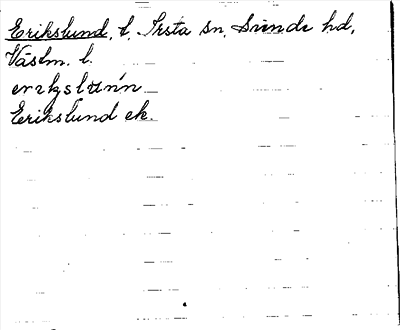 Erikslund, t, Irsta sn, Siende hd,
Västm. l.
erıkslun'n
Erikslund ek.